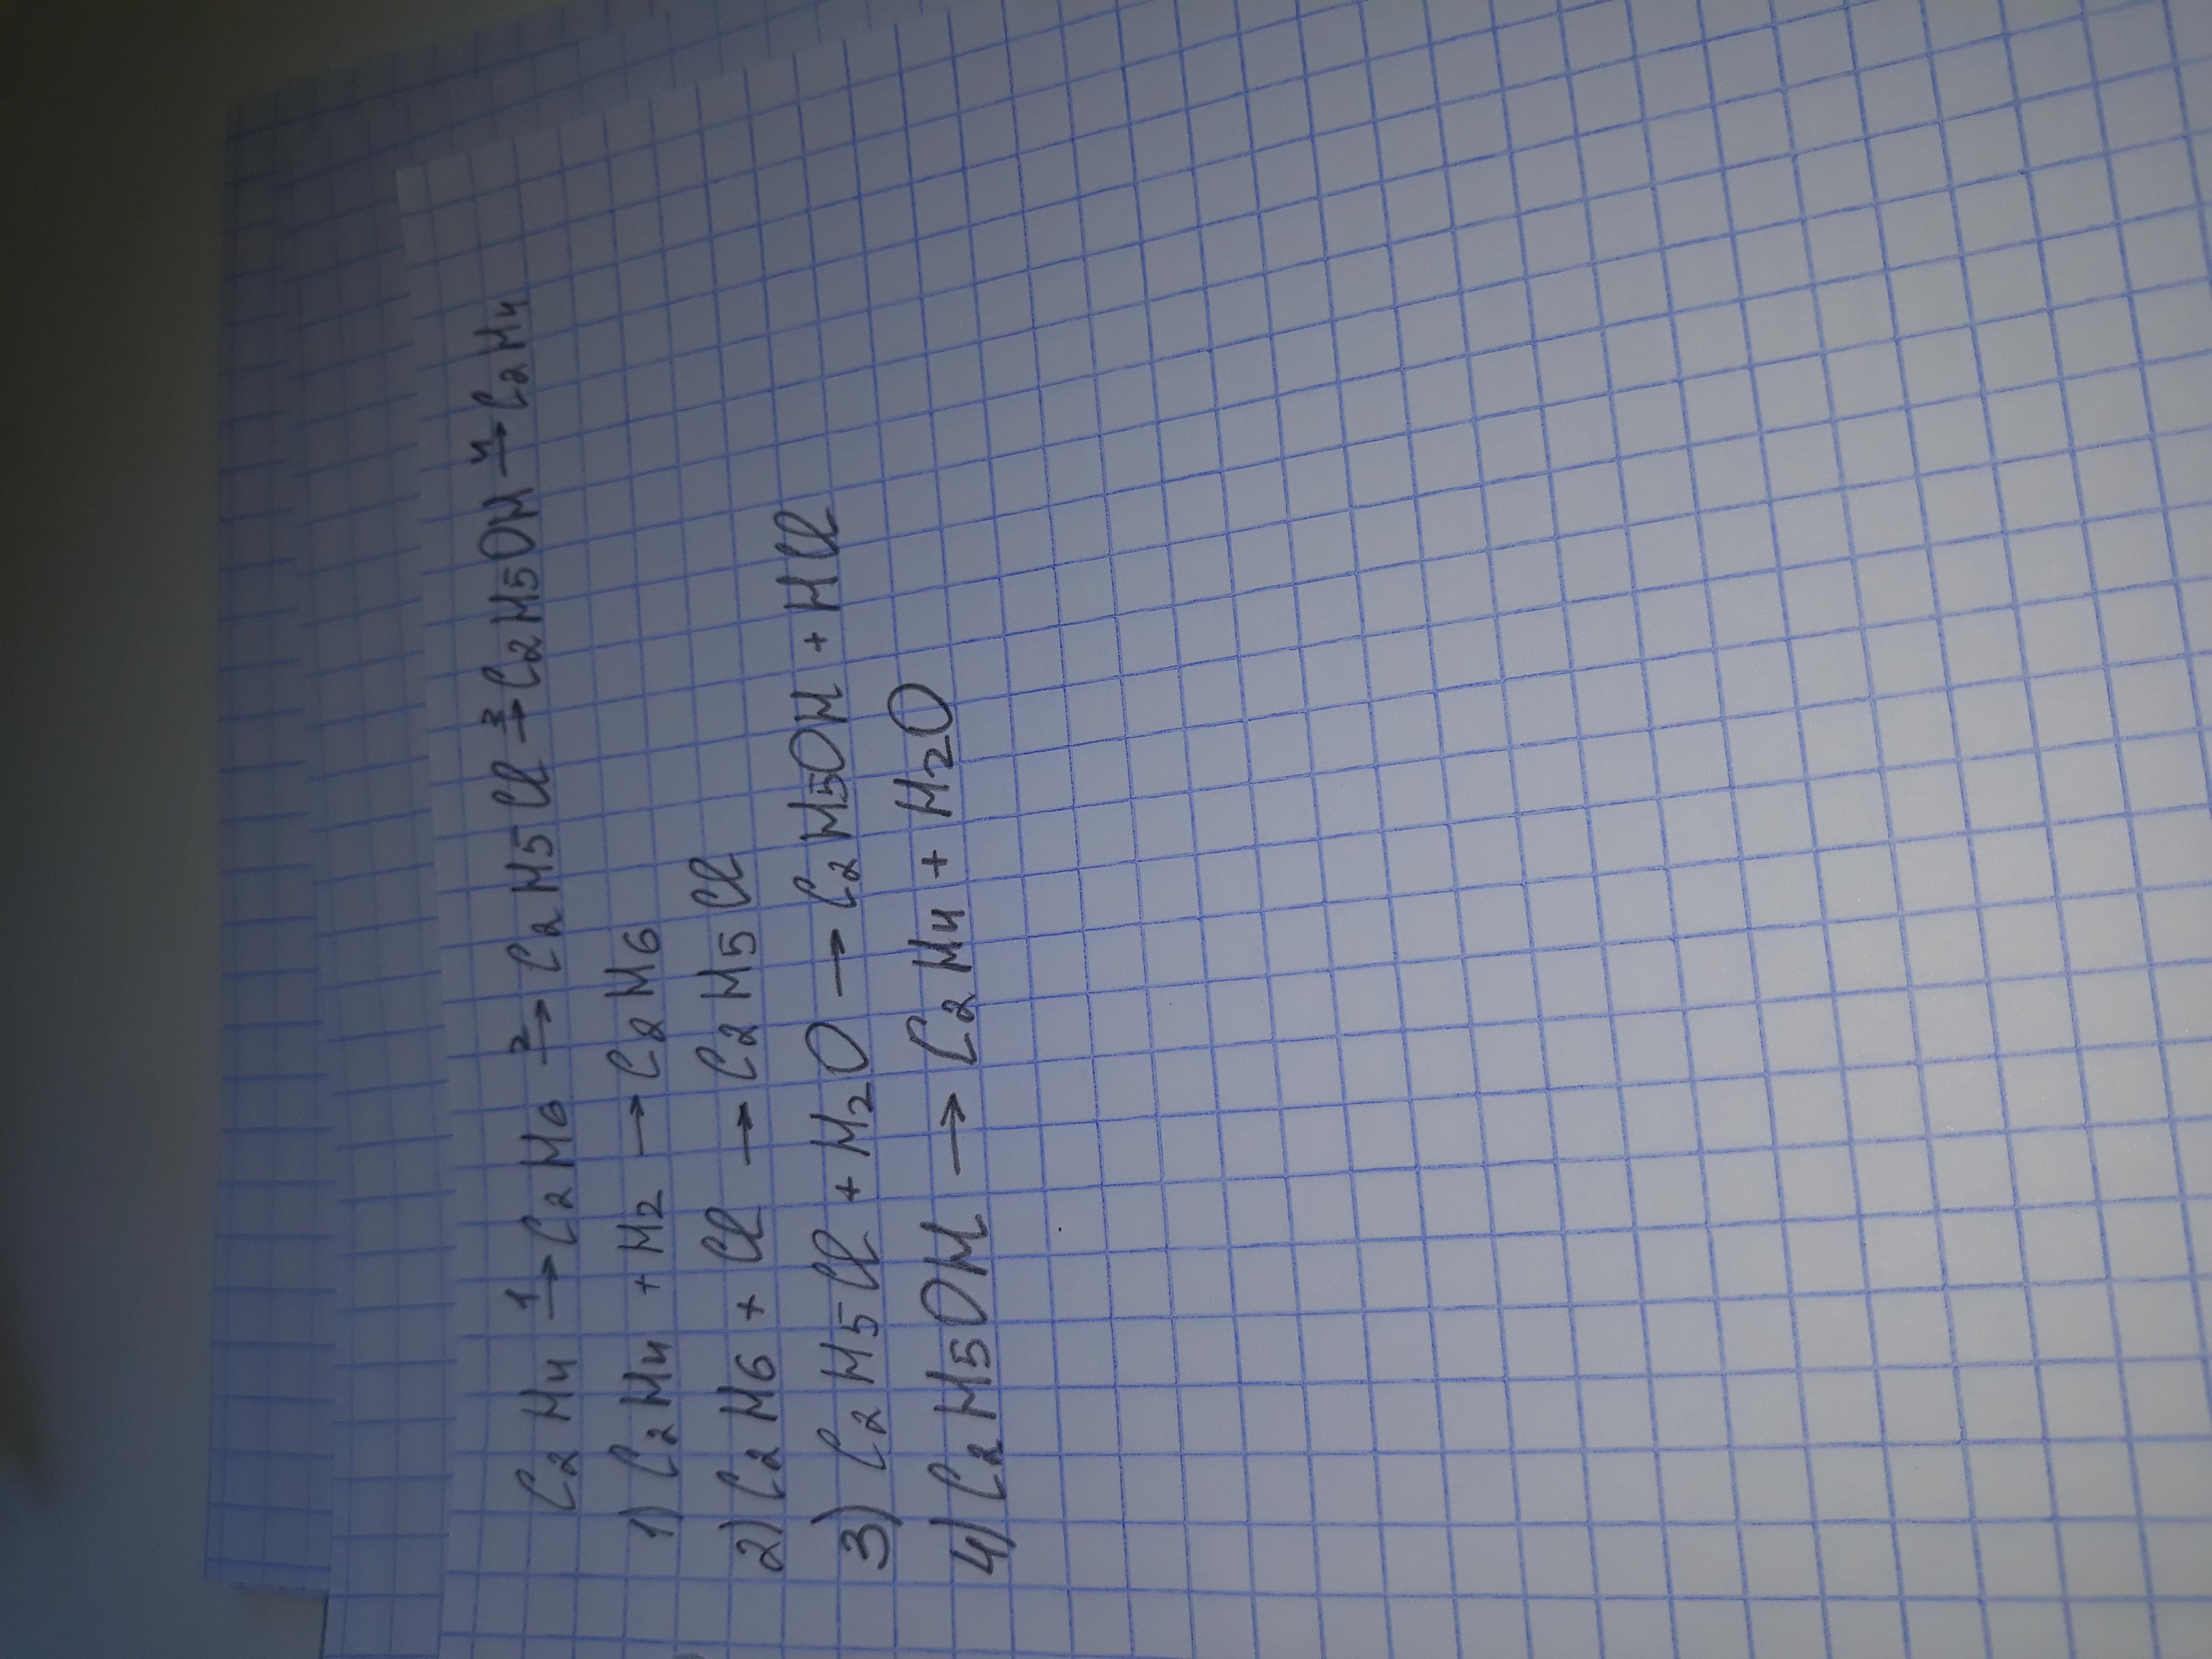 C₂H₄ →¹ C₂H₆ →² C₂H₅Cl →³ C₂H₅OH →⁴ C₂H₄
1) C₂H₄ + H₂ → C₂H₆
2) C₂H₆ + Cl → C₂H₅Cl
3) C₂H₅Cl + H₂O → C₂H₅OH + HCl
4) C₂H₅OH → C₂H₄ + H₂O